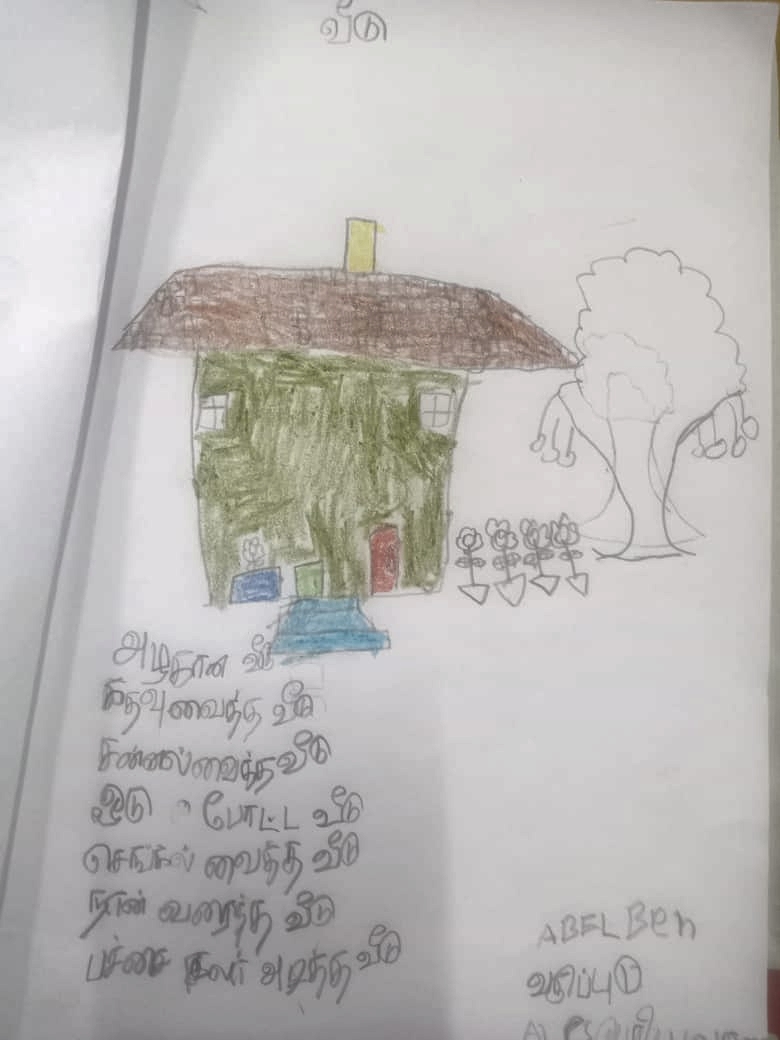 வீடு
அழகான வீடு
கதவு வைத்த வீடு
சன்னல் வைத்த வீடு
ஓடு போட்ட வீடு
செங்கல் வைத்த வீடு
நான் வரைந்த வீடு
பச்சை கலர் அடித்த வீடு
ABEL Ben
வகுப்பு 1